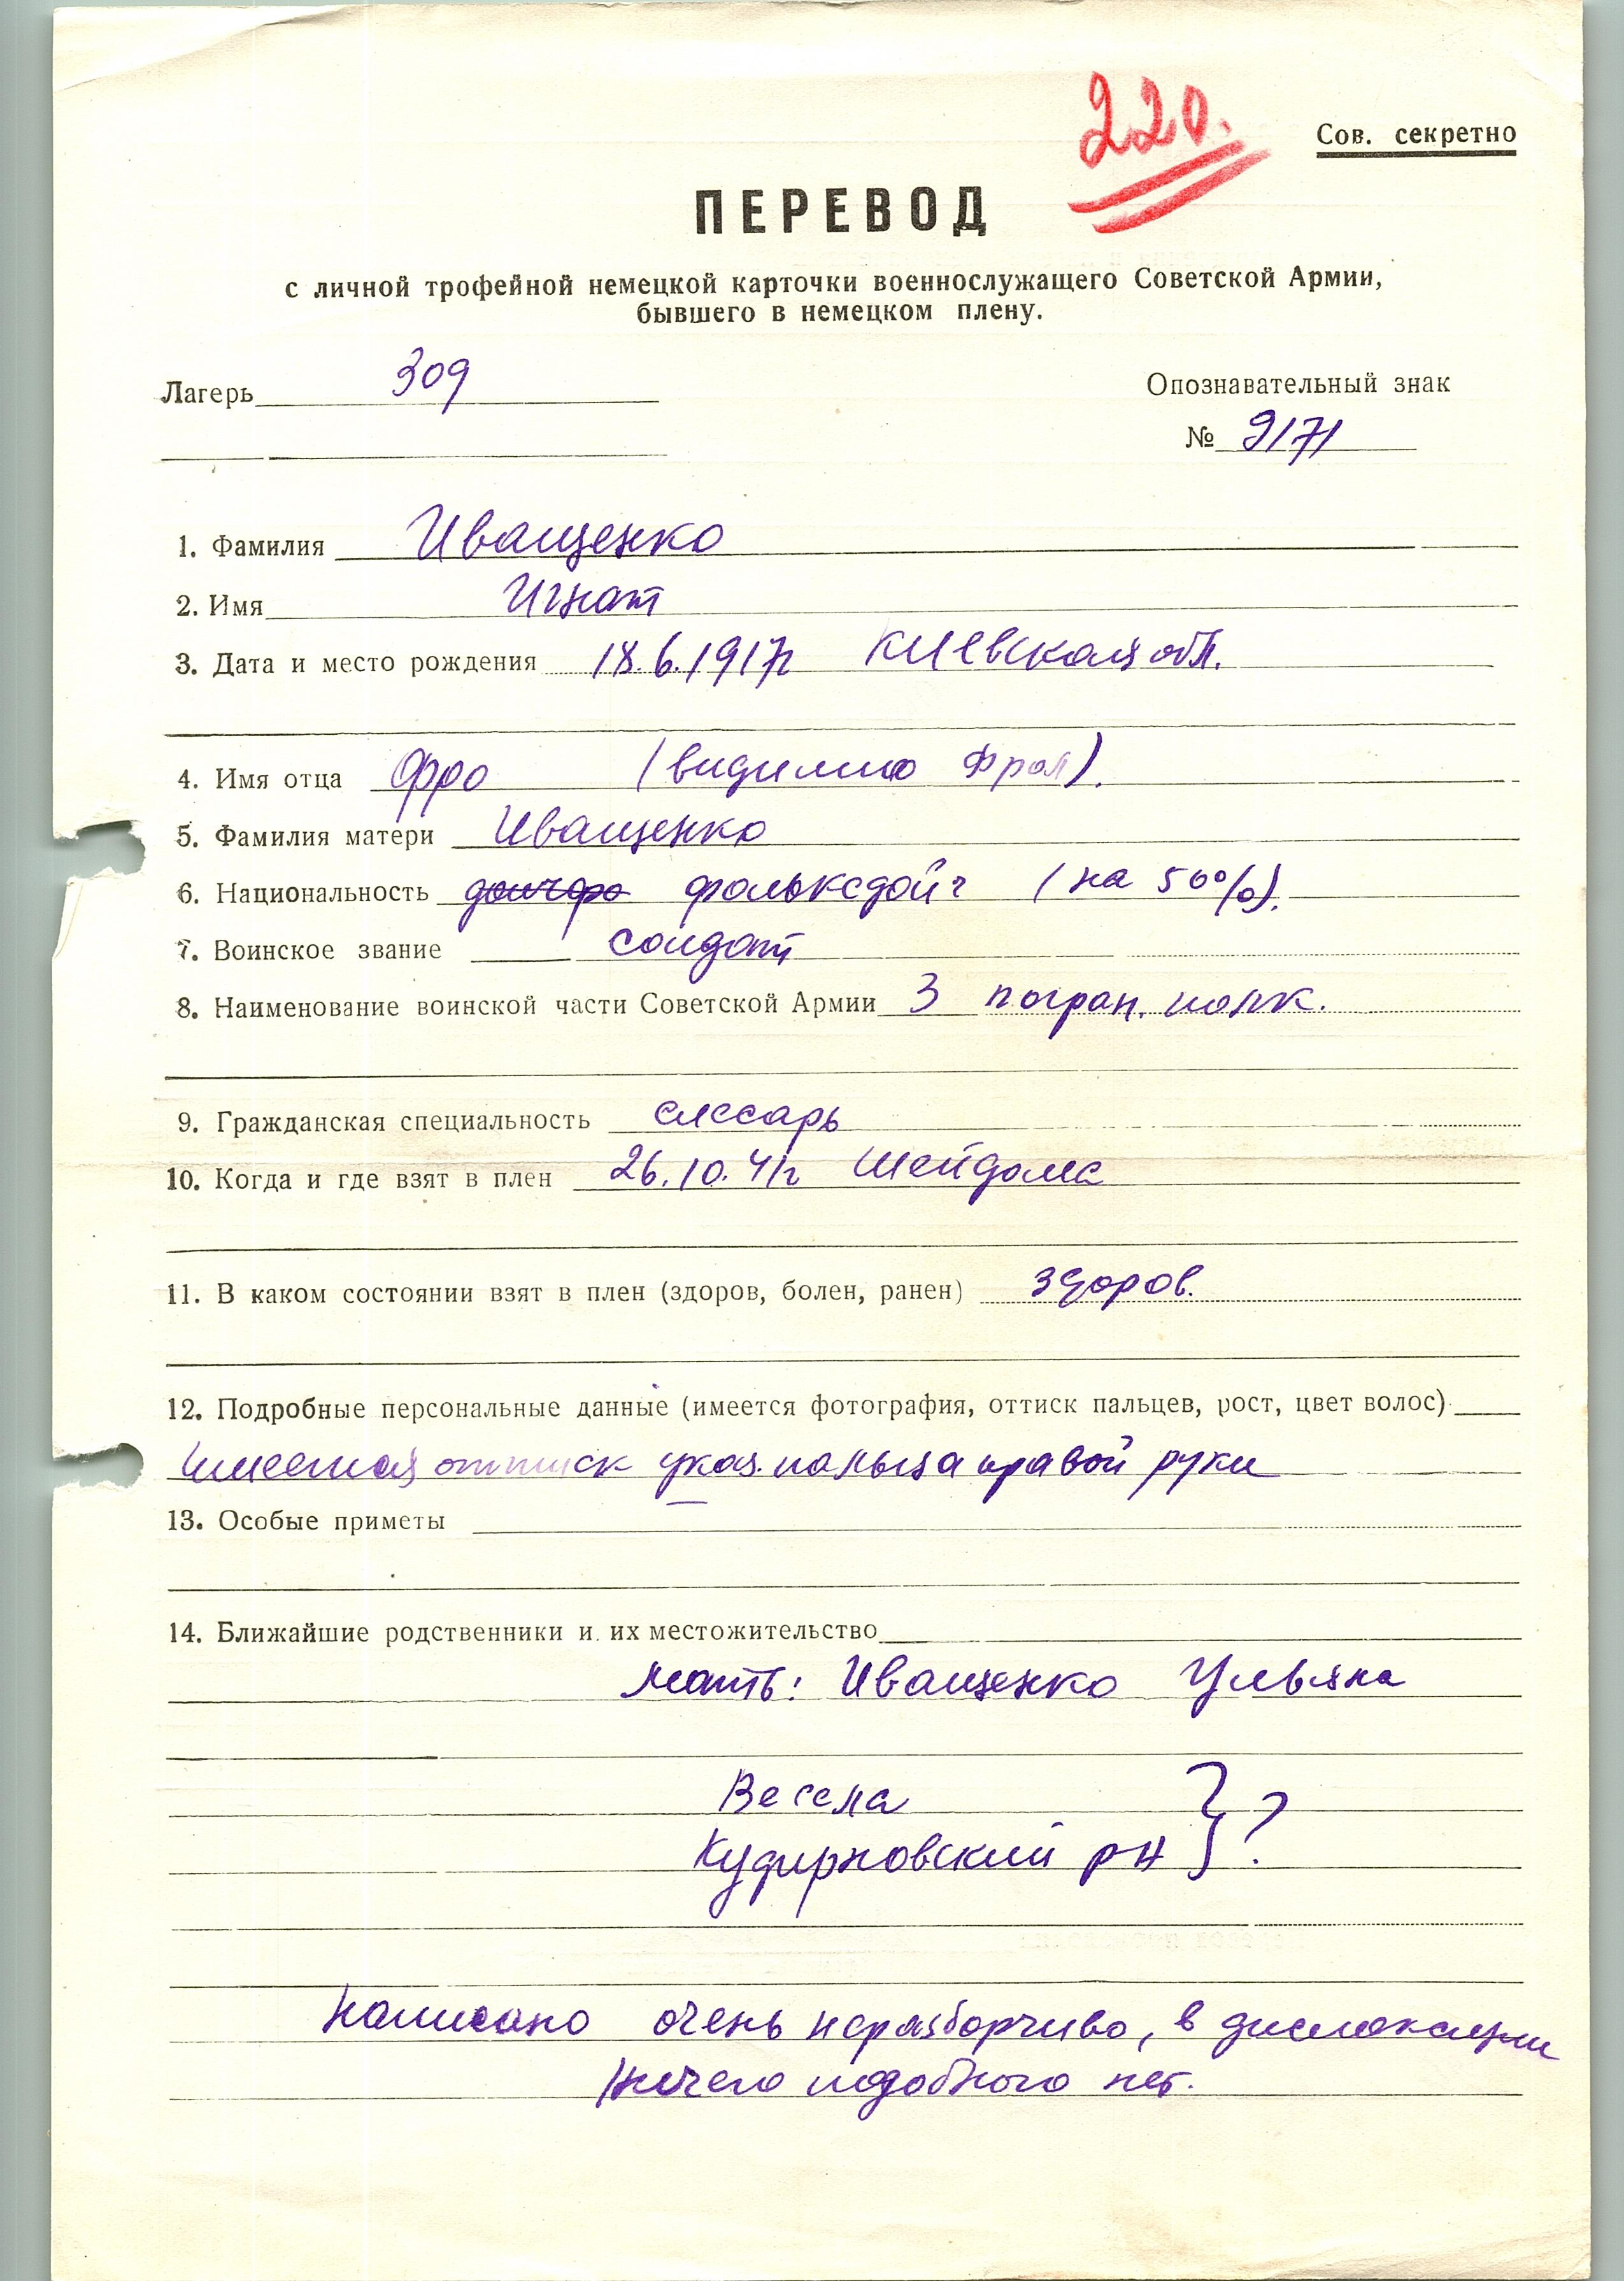 220.
Сов. секретно
ПЕРЕВОД
с личной трофейной немецкой карточки военнослужащего Советской Армии,
бывшего в немецком плену.
Лагерь 309
Опознавательный знак
№ 9171
1. Фамилия Иващенко
2. Имя Игнат
3. Дата и место рождения 18.6.1917г Киевская обл.
4. Имя отца Фро (видимо Фрол).
5. Фамилия матери Иващенко
6. Национальность фольксдойч (на 50%).
7. Воинское звание солдат
8. Наименование воинской части Советской Армии 3 погран. полк.
9. Гражданская специальность слесарь
10. Когда и где взят в плен 26.10.41г Шейдома
11. В каком состоянии взят в плен (здоров, болен, ранен) здоров.
12. Подробные персональные данные (имеется фотография, оттиск пальцев, рост, цвет волос)
имеется оттиск указ. пальца правой руки
13. Особые приметы
14. Ближайшие родственники и их местожительство
мать: Иващенко Ульяна
Весела
Кудирновский рн } ?
Написано очень неразборчиво, в дислокации
ничего подобного нет.